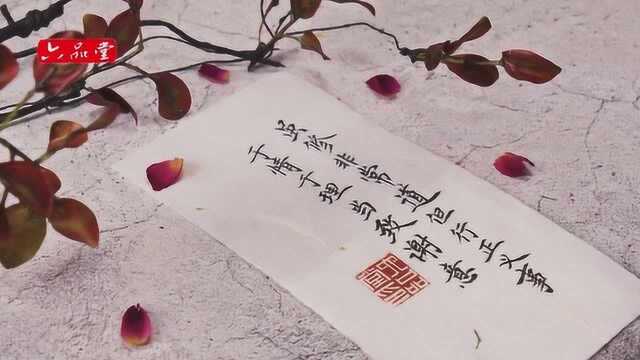 六品堂
虽修非常道但行正义事
于情于理当致谢意